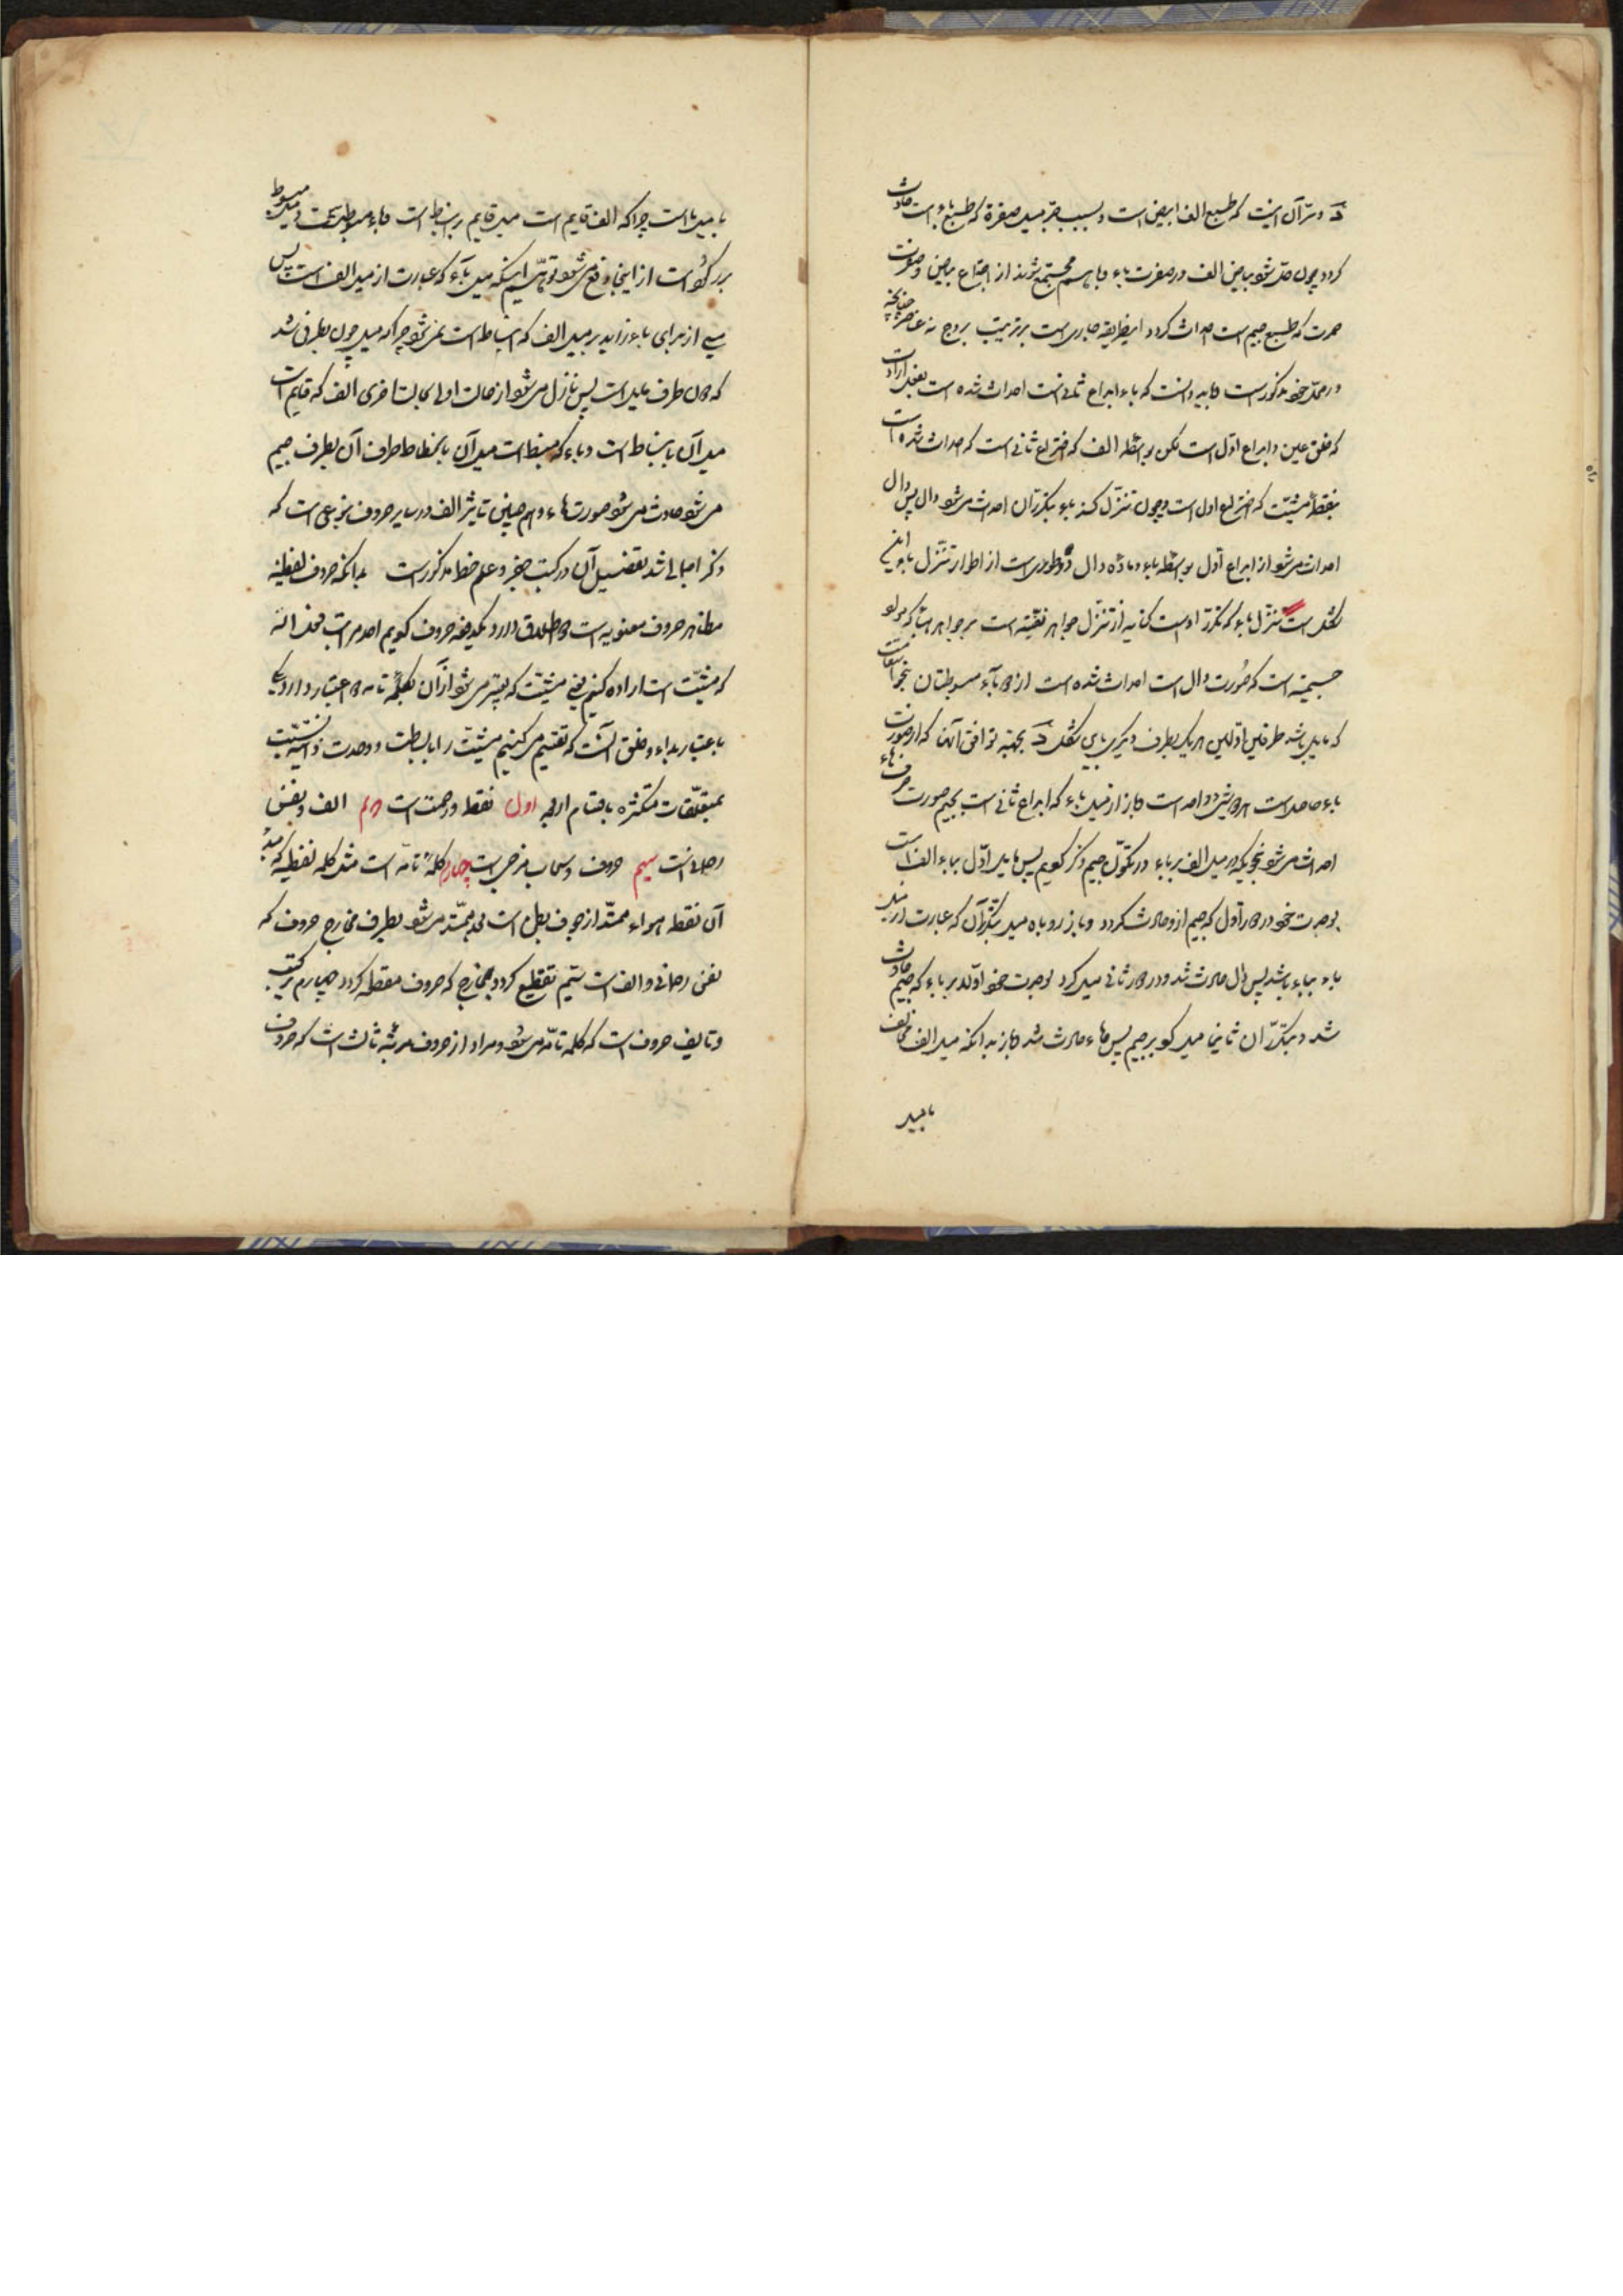 د و سرّ آن اینست که طبیع الف ابیض است و بسبب میل صفرة که طبیع باء است حادث
کردد چون شود بیاض الف در صفرت باء و باهم مجتمع شوند از اجتماع بیاض و صفرت
حمرت که طبیع جیم است احداث کردد این طریقه جاریست بر ترتیب بروج نه عناصر چنانچه
در محل خود مذکور است و باید دانست که باء ابداع ثانی است احداث شده است بفعل ارادت
که خلق عین و ابداع اول است لکن بواسطه الف که اختراع ثانی است که احداث شده است
بنقطه مشیّت که اختراع اول است و چون تنزّل کند باء بتکرّر آن احداث میشود دال پس دال
احداث میشود از ابداع اول بواسطه باء و ماده دال دو طوری است از اطوار تنزّل باء و این
تنزّل باء که تکرّر اوست کنایه از تنزّل جواهر نفسیّه است بر جواهر هباء که مواد
جسمیّه است که صورت دال است احداث شده است از دو باء مبسوطتان بنحو استقامت
که مایل باشد طرفین اولین هر یک بطرف دیگری باین شکل د بجهة توافق آنها که از صورت
باء حاصل است هر دو شیء واحد است و باز از میل باء که ابداع ثانی است بجیم صورت حرف هاء
احداث میشود بنحویکه در میل الف بر باء در تکوّن جیم ذکر کردیم پس مایل اول بباء الف است
بوحدت خود در دور اول که جیم ازو حادث کردد و باز رو باه میل بتکرّر آن که عبارت از میل
باء بباء باشد پس دال حادث شد و در دور ثانی میل کرد بوحدت خود اولا بر باء که جیم حادث
شد و بتکرّر آن ثانیا میل کرد بر جیم پس هاء حادث شد و باز بدانکه میل الف مخالف
با میل
با میل باء است چرا که الف قایم است میل قایم بر انبساط است و باء مبسوط است و میل مبسوط
بر رکود است از اینجا دفع میشود توهّم اینکه میل باء که عبارت از میل الف است پس
میلی از برای باء زاید بر میل الف که انبساط است نمیشود چرا که میل چون بطرفی شد
که آن طرف مایل است پس نازل میشود از حالت اولی بحالت اخری الف که قایم است
میل آن بانبساط است و باء که منبسط است میل آن بانحطاط طرف آن بطرف جیم
میشود حادث میشود صورت هاء و همچنین تاثیر الف در سایر حروف بنوعی است که
ذکر اجمالی شد تفضیل آن در کتب جفر و علم خط مذکور است بدانکه حروف لفظیّه
مظاهر حروف معنویه است و اطلاق دارد یکدفعه حروف کویم احد مراتب فعل الله
که مشیّت است اراده کنیم یعنی مشیّت که تعبیر میشود از آن بکلمه تامه دو اعتبار دارد یکی
باعتبار بداء و خلق آنست که تقسیم میکنیم مشیّت را با بساطت و وحدت ذاتیه بنسبت
بمتعلّقات متکثره باقسام اربعه اول نقطه و رحمت است دوم الف و نفس
رحمانی است سیم حروف و سحاب مزجی است چهارم کلمه تامه است مثل کلمه لفظیه که مبدء
آن نقطه هواء ممتدّ از جوف بطن است بعد ممتدّ میشود بطرف مخارج حروف که
نفس رحمانی و الف است سیّم تقطیع کردد بمخارج که حروف مقطعه کردد چهارم ترکیب
و تالیف حروف است که کلمه تامه میشود و مراد از حروف مرتبه ثالث است که حروف